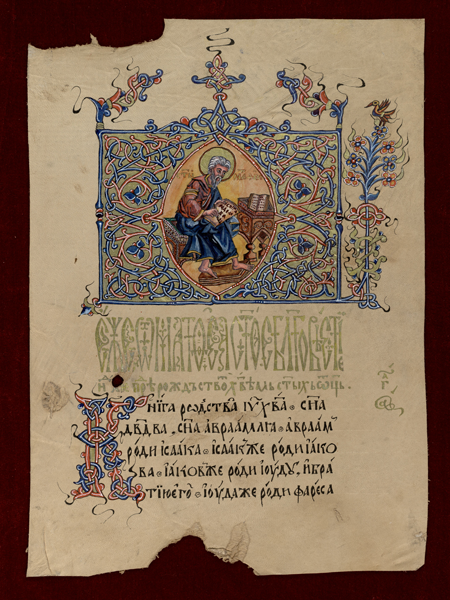 Еже ѿ Матѳеа ст҃ое бл҃говѣстїе
Книга рѡдства іу҃ х҃ва · сн҃а
дв҃два , сн҃а авраамлѧ · авраам
роди ісаака · ісаакже роди іако
ва · іаковже роди іоуду , и бра
тїю его · іоудаже роди фареса